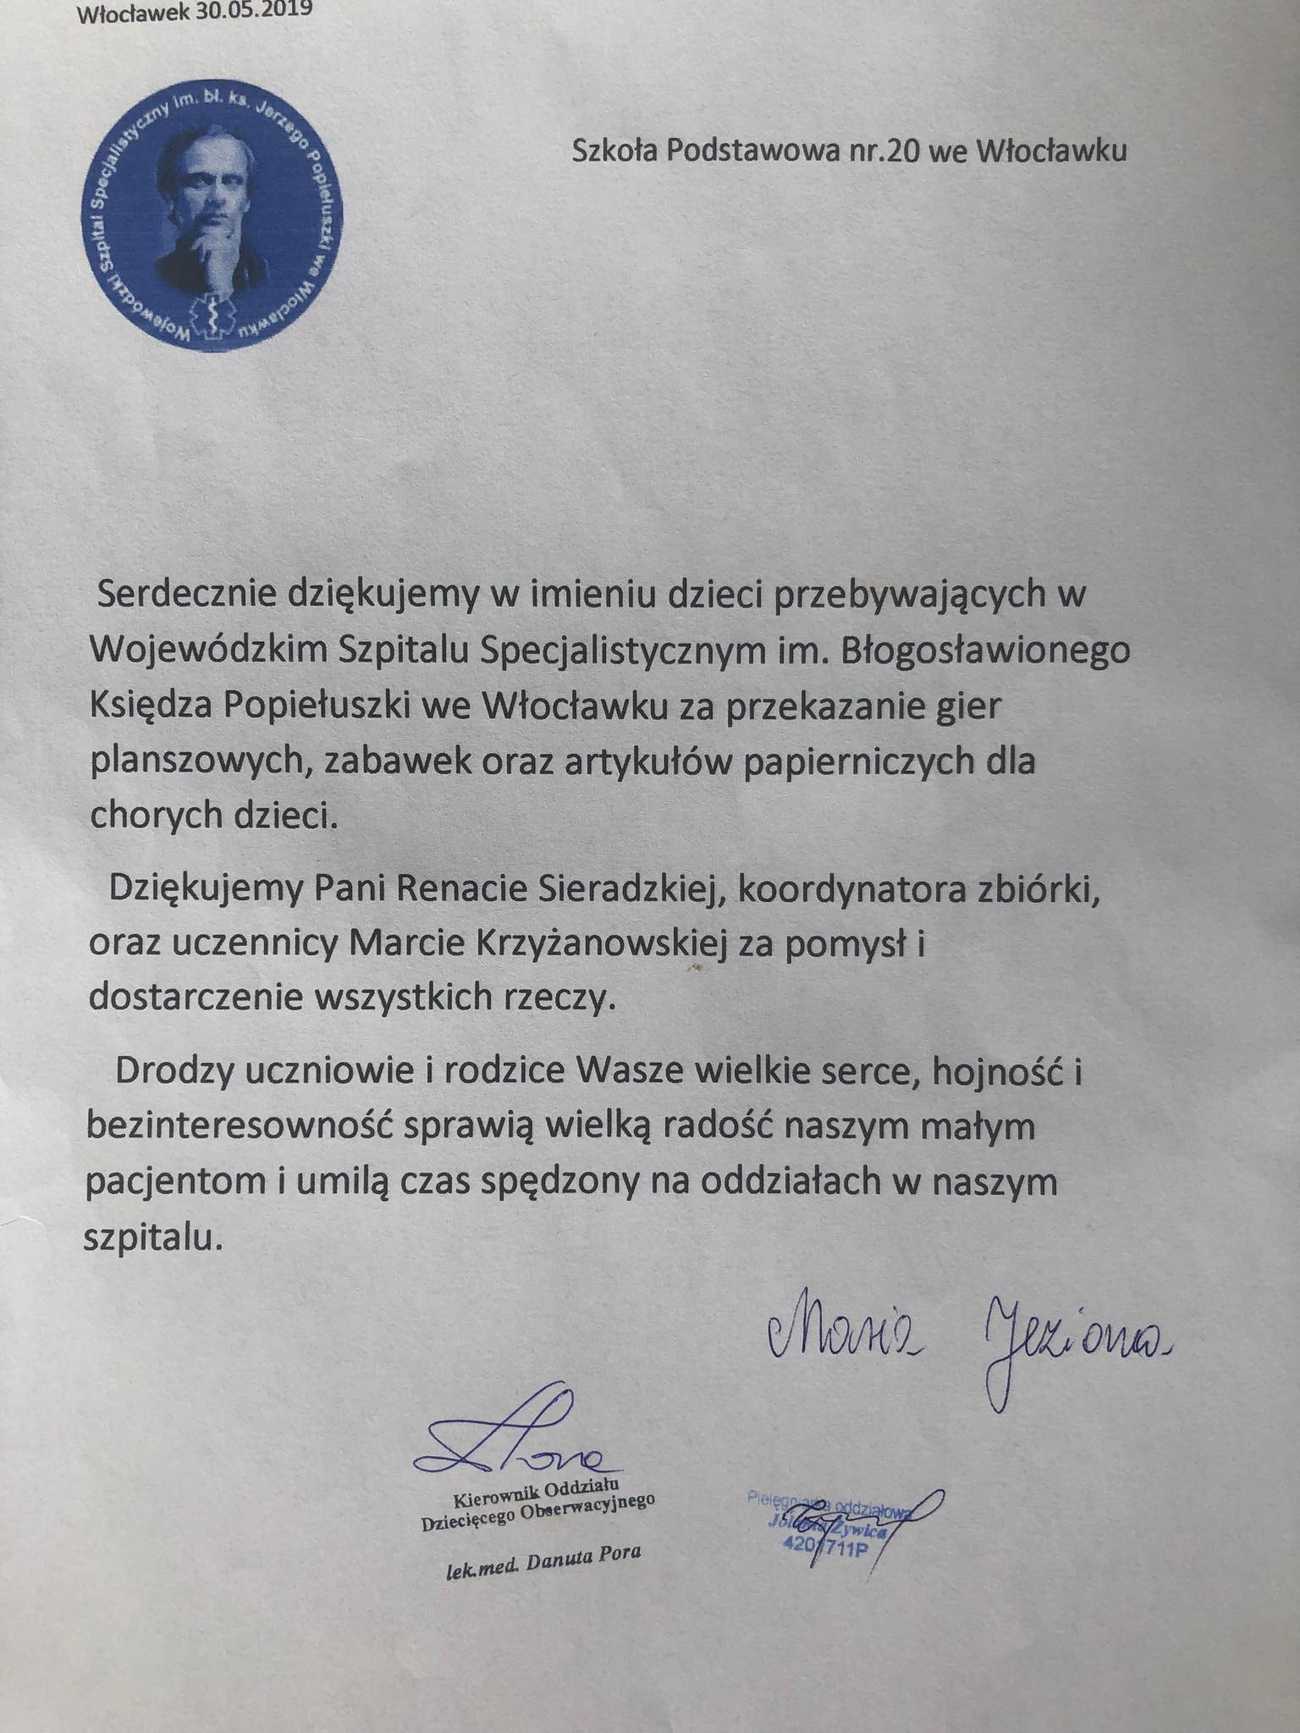 Włocławek 30.05.2019
Wojewódzki Szpital Specjalistyczny im. bł. ks. Jerzego Popiełuszki we Włocławku
Szkoła Podstawowa nr.20 we Włocławku
Serdecznie dziękujemy w imieniu dzieci przebywających w
Wojewódzkim Szpitalu Specjalistycznym im. Błogosławionego
Księdza Popiełuszki we Włocławku za przekazanie gier
planszowych, zabawek oraz artykułów papierniczych dla
chorych dzieci.
Dziękujemy Pani Renacie Sieradzkiej, koordynatora zbiórki,
oraz uczennicy Marcie Krzyżanowskiej za pomysł i
dostarczenie wszystkich rzeczy.
Drodzy uczniowie i rodzice Wasze wielkie serce, hojność i
bezinteresowność sprawią wielką radość naszym małym
pacjentom i umilą czas spędzony na oddziałach w naszym
szpitalu.
Maria Jeziona
Kierownik Oddziału
Dziecięcego Obserwacyjnego
lek.med. Danuta Pora
oddziałowa
Żywica